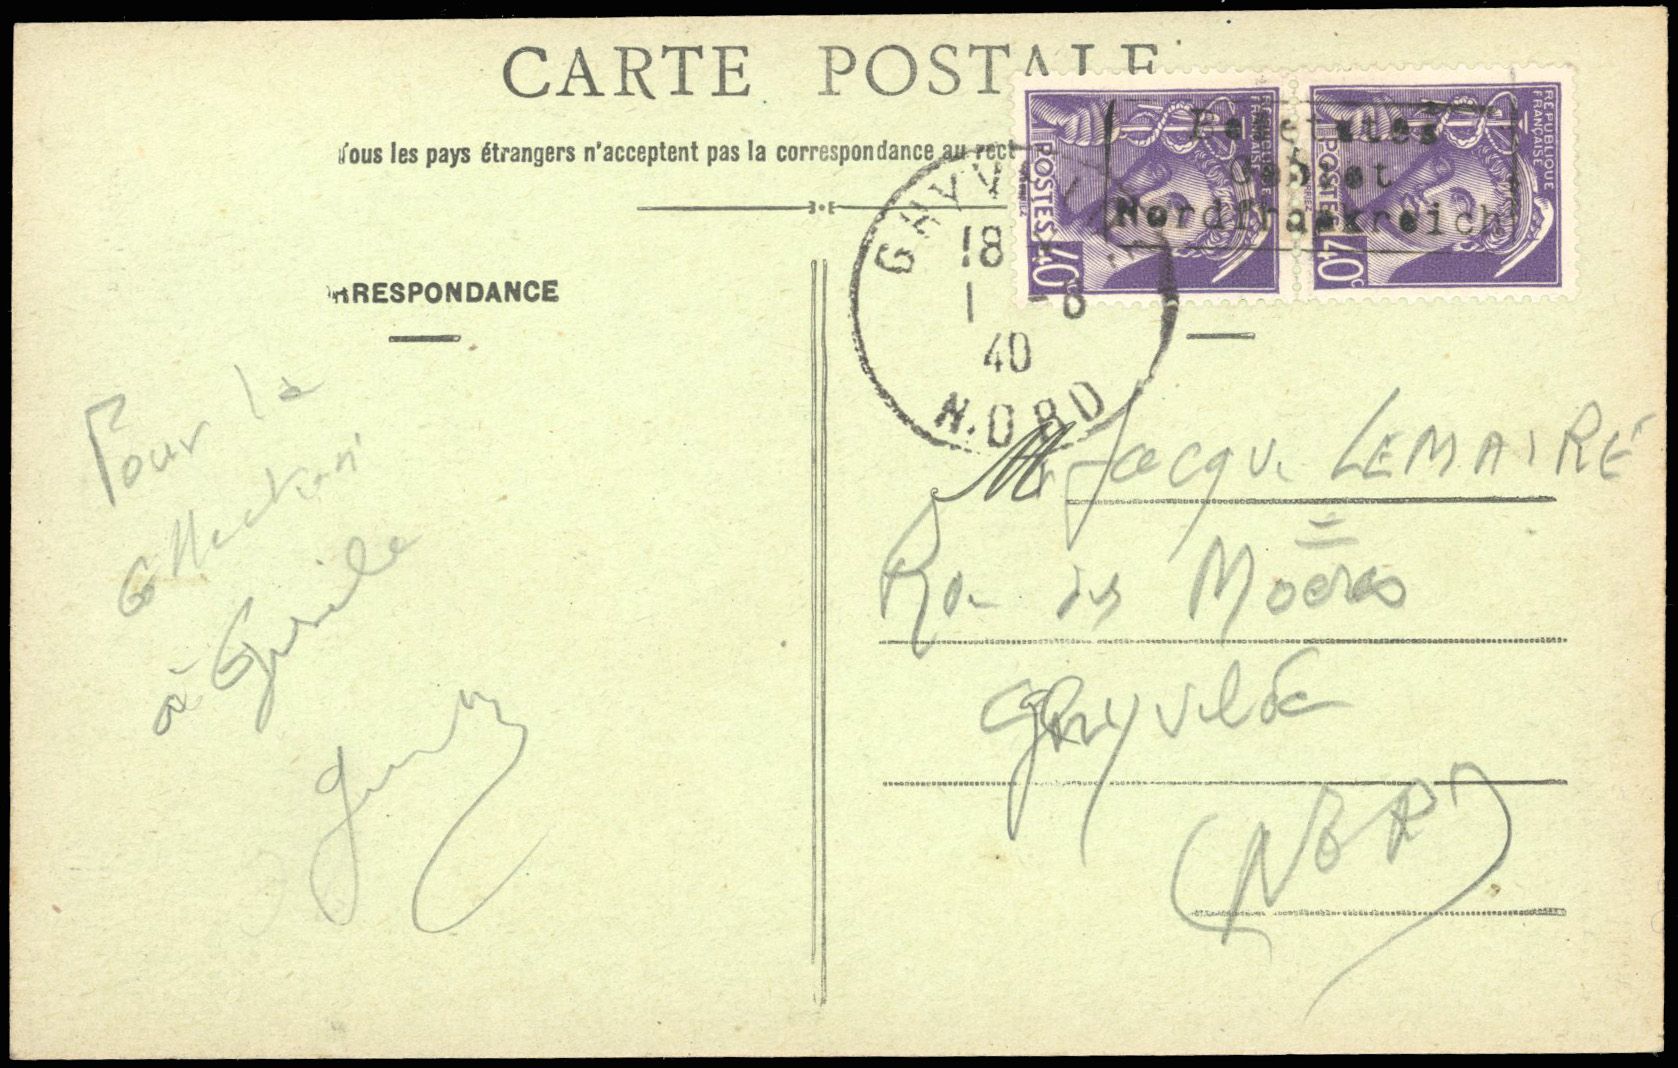 CARTE POSTALE
Tous les pays étrangers n'acceptent pas la correspondance au rect
RRESPONDANCE
RÉPUBLIQUE FRANÇAISE
POSTES
40c
RÉPUBLIQUE FRANÇAISE
POSTES
40c
Besetztes
Gebiet
Nordfrankreich
GHYVELDE
18
1 8
40
NORD
Pour la
collection
à
M Jacque LEMAIRE
Rue des Moeres
Ghyvelde
(NORD)